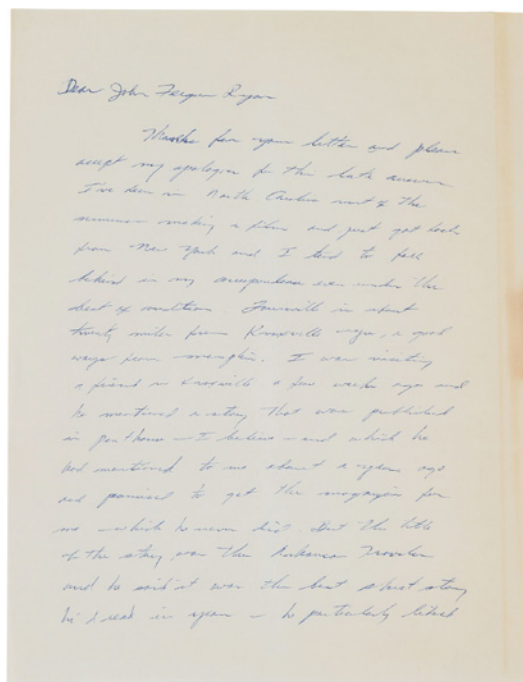 Dear John Fergus Ryan
Thanks for your letter and please
accept my apologies for this late answer
I've been in North Carolina most of the
summer making a film and just got back
from New York and I tend to fall
behind in my correspondence even under the
best of conditions. Louisville is about
twenty miles from Knoxville, a good
ways from Memphis. I was visiting
a friend in Knoxville a few weeks ago and
he mentioned a story that was published
in Penthouse — I believe — and which he
had mentioned to me about a year ago
and promised to get the magazine for
me — which he never did. But the title
of the story was the Arkansas Traveler
and he said it was the best short story
he'd read in years — he particularly liked